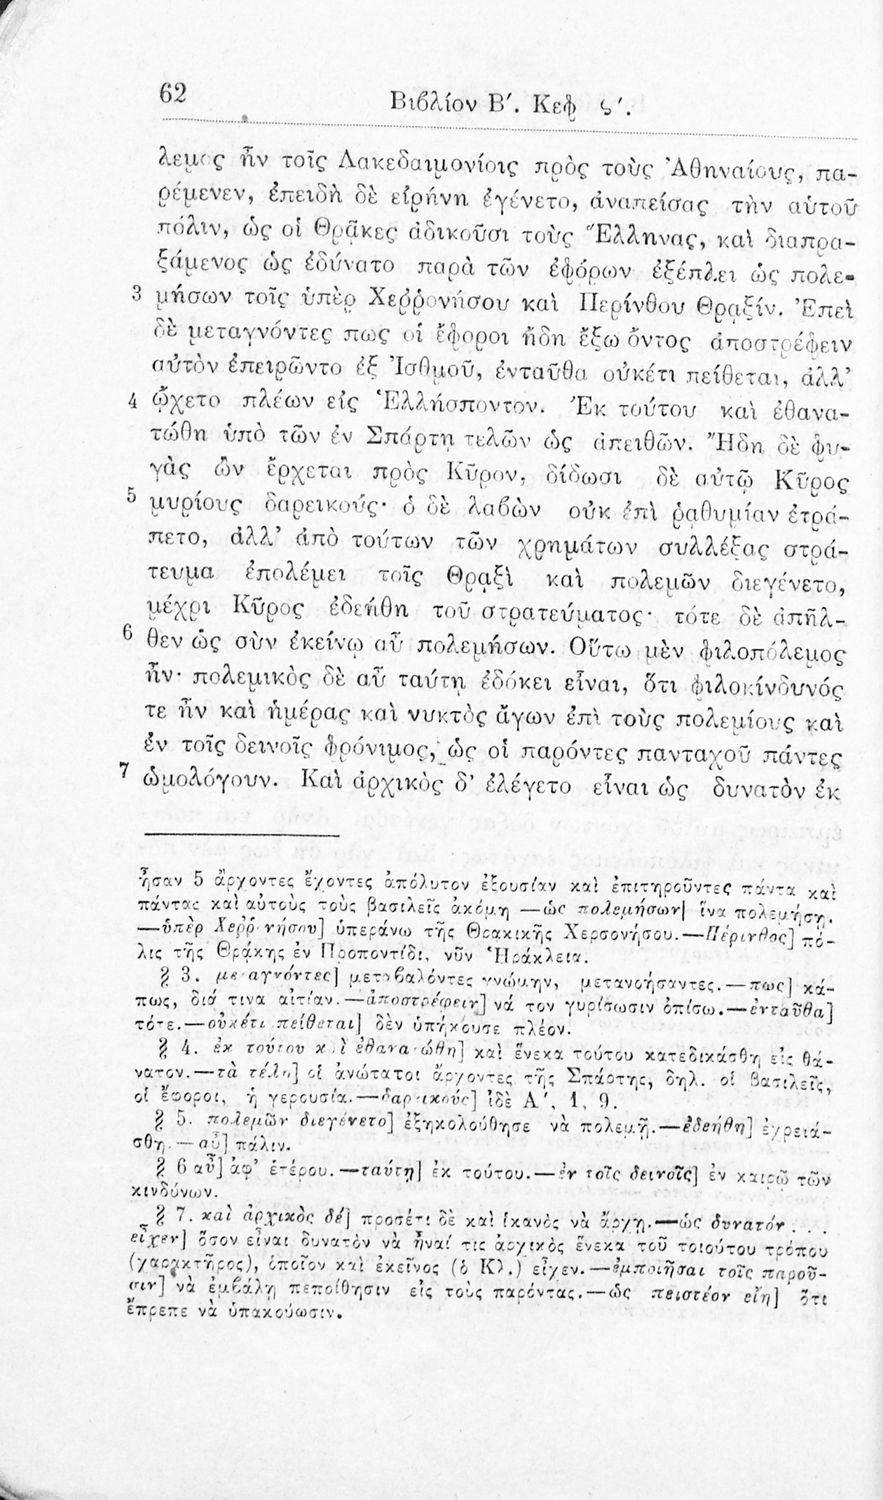 62
Βιβλίον Β΄. Κεφ ϛ΄.
λεμος ἦν τοῖς Λακεδαιμονίοις πρὸς τοὺς Ἀθηναίους, πα-
ρέμενεν, ἐπειδὴ δὲ εἰρήνη ἐγένετο, ἀναπείσας τὴν αὑτοῦ
πόλιν, ὡς οἱ Θρᾷκες ἀδικοῦσι τοὺς Ἕλληνας, καὶ διαπρα-
ξάμενος ὡς ἐδύνατο παρὰ τῶν ἐφόρων ἐξέπλει ὡς πολε-
3 μήσων τοῖς ὑπὲρ Χερρονήσου καὶ Περίνθου Θρᾳξίν. Ἐπεὶ
δὲ μεταγνόντες πως οἱ ἔφοροι ἤδη ἔξω ὄντος ἀποστρέφειν
αὐτὸν ἐπειρῶντο ἐξ Ἰσθμοῦ, ἐνταῦθα οὐκέτι πείθεται, ἀλλ’
4 ᾤχετο πλέων εἰς Ἑλλήσποντον. Ἐκ τούτου καὶ ἐθανα-
τώθη ὑπὸ τῶν ἐν Σπάρτῃ τελῶν ὡς ἀπειθῶν. Ἤδη δὲ φυ-
γὰς ὢν ἔρχεται πρὸς Κῦρον, δίδωσι δὲ αὐτῷ Κῦρος
5 μυρίους δαρεικούς· ὁ δὲ λαβὼν οὐκ ἐπὶ ῥαθυμίαν ἐτρά-
πετο, ἀλλ’ ἀπὸ τούτων τῶν χρημάτων συλλέξας στρά-
τευμα ἐπολέμει τοῖς Θρᾳξὶ καὶ πολεμῶν διεγένετο,
μέχρι Κῦρος ἐδεήθη τοῦ στρατεύματος· τότε δὲ ἀπῆλ-
6 θεν ὡς σὺν ἐκείνῳ αὖ πολεμήσων. Οὕτω μὲν φιλοπόλεμος
ἦν· πολεμικὸς δὲ αὖ ταύτῃ ἐδόκει εἶναι, ὅτι φιλοκίνδυνός
τε ἦν καὶ ἡμέρας καὶ νυκτὸς ἄγων ἐπὶ τοὺς πολεμίους καὶ
ἐν τοῖς δεινοῖς φρόνιμος, ὡς οἱ παρόντες πανταχοῦ πάντες
7 ὡμολόγουν. Καὶ ἀρχικὸς δ’ ἐλέγετο εἶναι ὡς δυνατὸν ἐκ
ἦσαν 5 ἄρχοντες ἔχοντες ἀπόλυτον ἐξουσίαν καὶ ἐπιτηροῦντες πάντα καὶ
πάντας καὶ αὐτοὺς τοὺς βασιλεῖς ἀκόμη —ὡς πολεμήσων] ἵνα πολεμήσῃ.
—ὑπὲρ Χερρονήσου] ὑπεράνω τῆς Θρακικῆς Χερσονήσου.—Πέρινθος] πό-
λις τῆς Θρᾴκης ἐν Προποντίδι, νῦν Ἡράκλεια.
§ 3. μεταγνόντες] μεταβαλόντες γνώμην, μετανοήσαντες.—πως] κά-
πως, διά τινα αἰτίαν.—ἀποστρέφειν] νά τον γυρίσωσιν ὀπίσω.—ἐνταῦθα]
τότε.—οὐκέτι πείθεται] δὲν ὑπήκουσε πλέον.
§ 4. ἐκ τούτου καὶ ἐθανατώθη] καὶ ἕνεκα τούτου κατεδικάσθη εἰς θά-
νατον.—τὰ τέλη] οἱ ἀνώτατοι ἄρχοντες τῆς Σπάρτης, δηλ. οἱ βασιλεῖς,
οἱ ἔφοροι, ἡ γερουσία.—δαρεικούς] ἰδὲ Α΄, 1, 9.
§ 5. πολεμῶν διεγένετο] ἐξηκολούθησε νὰ πολεμῇ.—ἐδεήθη] ἐχρειά-
σθη.—αὖ] πάλιν.
§ 6 αὖ] ἀφ’ ἑτέρου.—ταύτῃ] ἐκ τούτου.—ἐν τοῖς δεινοῖς] ἐν καιρῷ τῶν
κινδύνων.
§ 7. καὶ ἀρχικὸς δέ] προσέτι δὲ καὶ ἱκανὸς νὰ ἄρχῃ.—ὡς δυνατόν . . .
εἶχεν] ὅσον εἶναι δυνατὸν νὰ ἦναί τις ἀρχικὸς ἕνεκα τοῦ τοιούτου τρόπου
(χαρακτῆρος), ὁποῖον καὶ ἐκεῖνος (ὁ Κλ.) εἶχεν.—ἐμποιῆσαι τοῖς παροῦ-
σιν] νὰ ἐμβάλῃ πεποίθησιν εἰς τοὺς παρόντας.—ὡς πειστέον εἴη] ὅτι
ἔπρεπε νὰ ὑπακούωσιν.